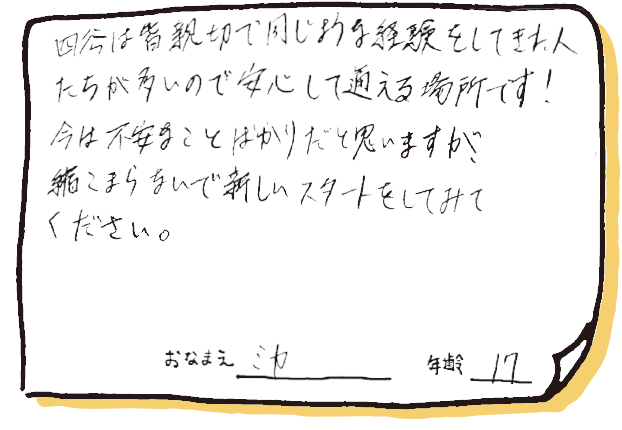 四谷は皆親切で同じ様な経験をしてきた人
たちが多いので安心して通える場所です!
今は不安なことばかりだと思いますが、
縮こまらないで新しいスタートをしてみて
ください。
おなまえ ミカ 年齢 17